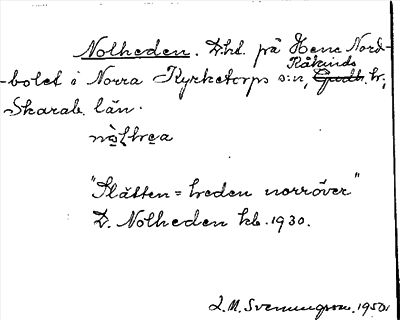 Nolheden. D.ht. på Hene Nord-
Kåkinds
-bolet i Norra Kyrketorps s:n, Gudh. hr,
Skarab. län.
nòlhea
"Slätten = heden norröver"
D. Nolheden kb. 1930.
L. M. Svenungsson. 1950.